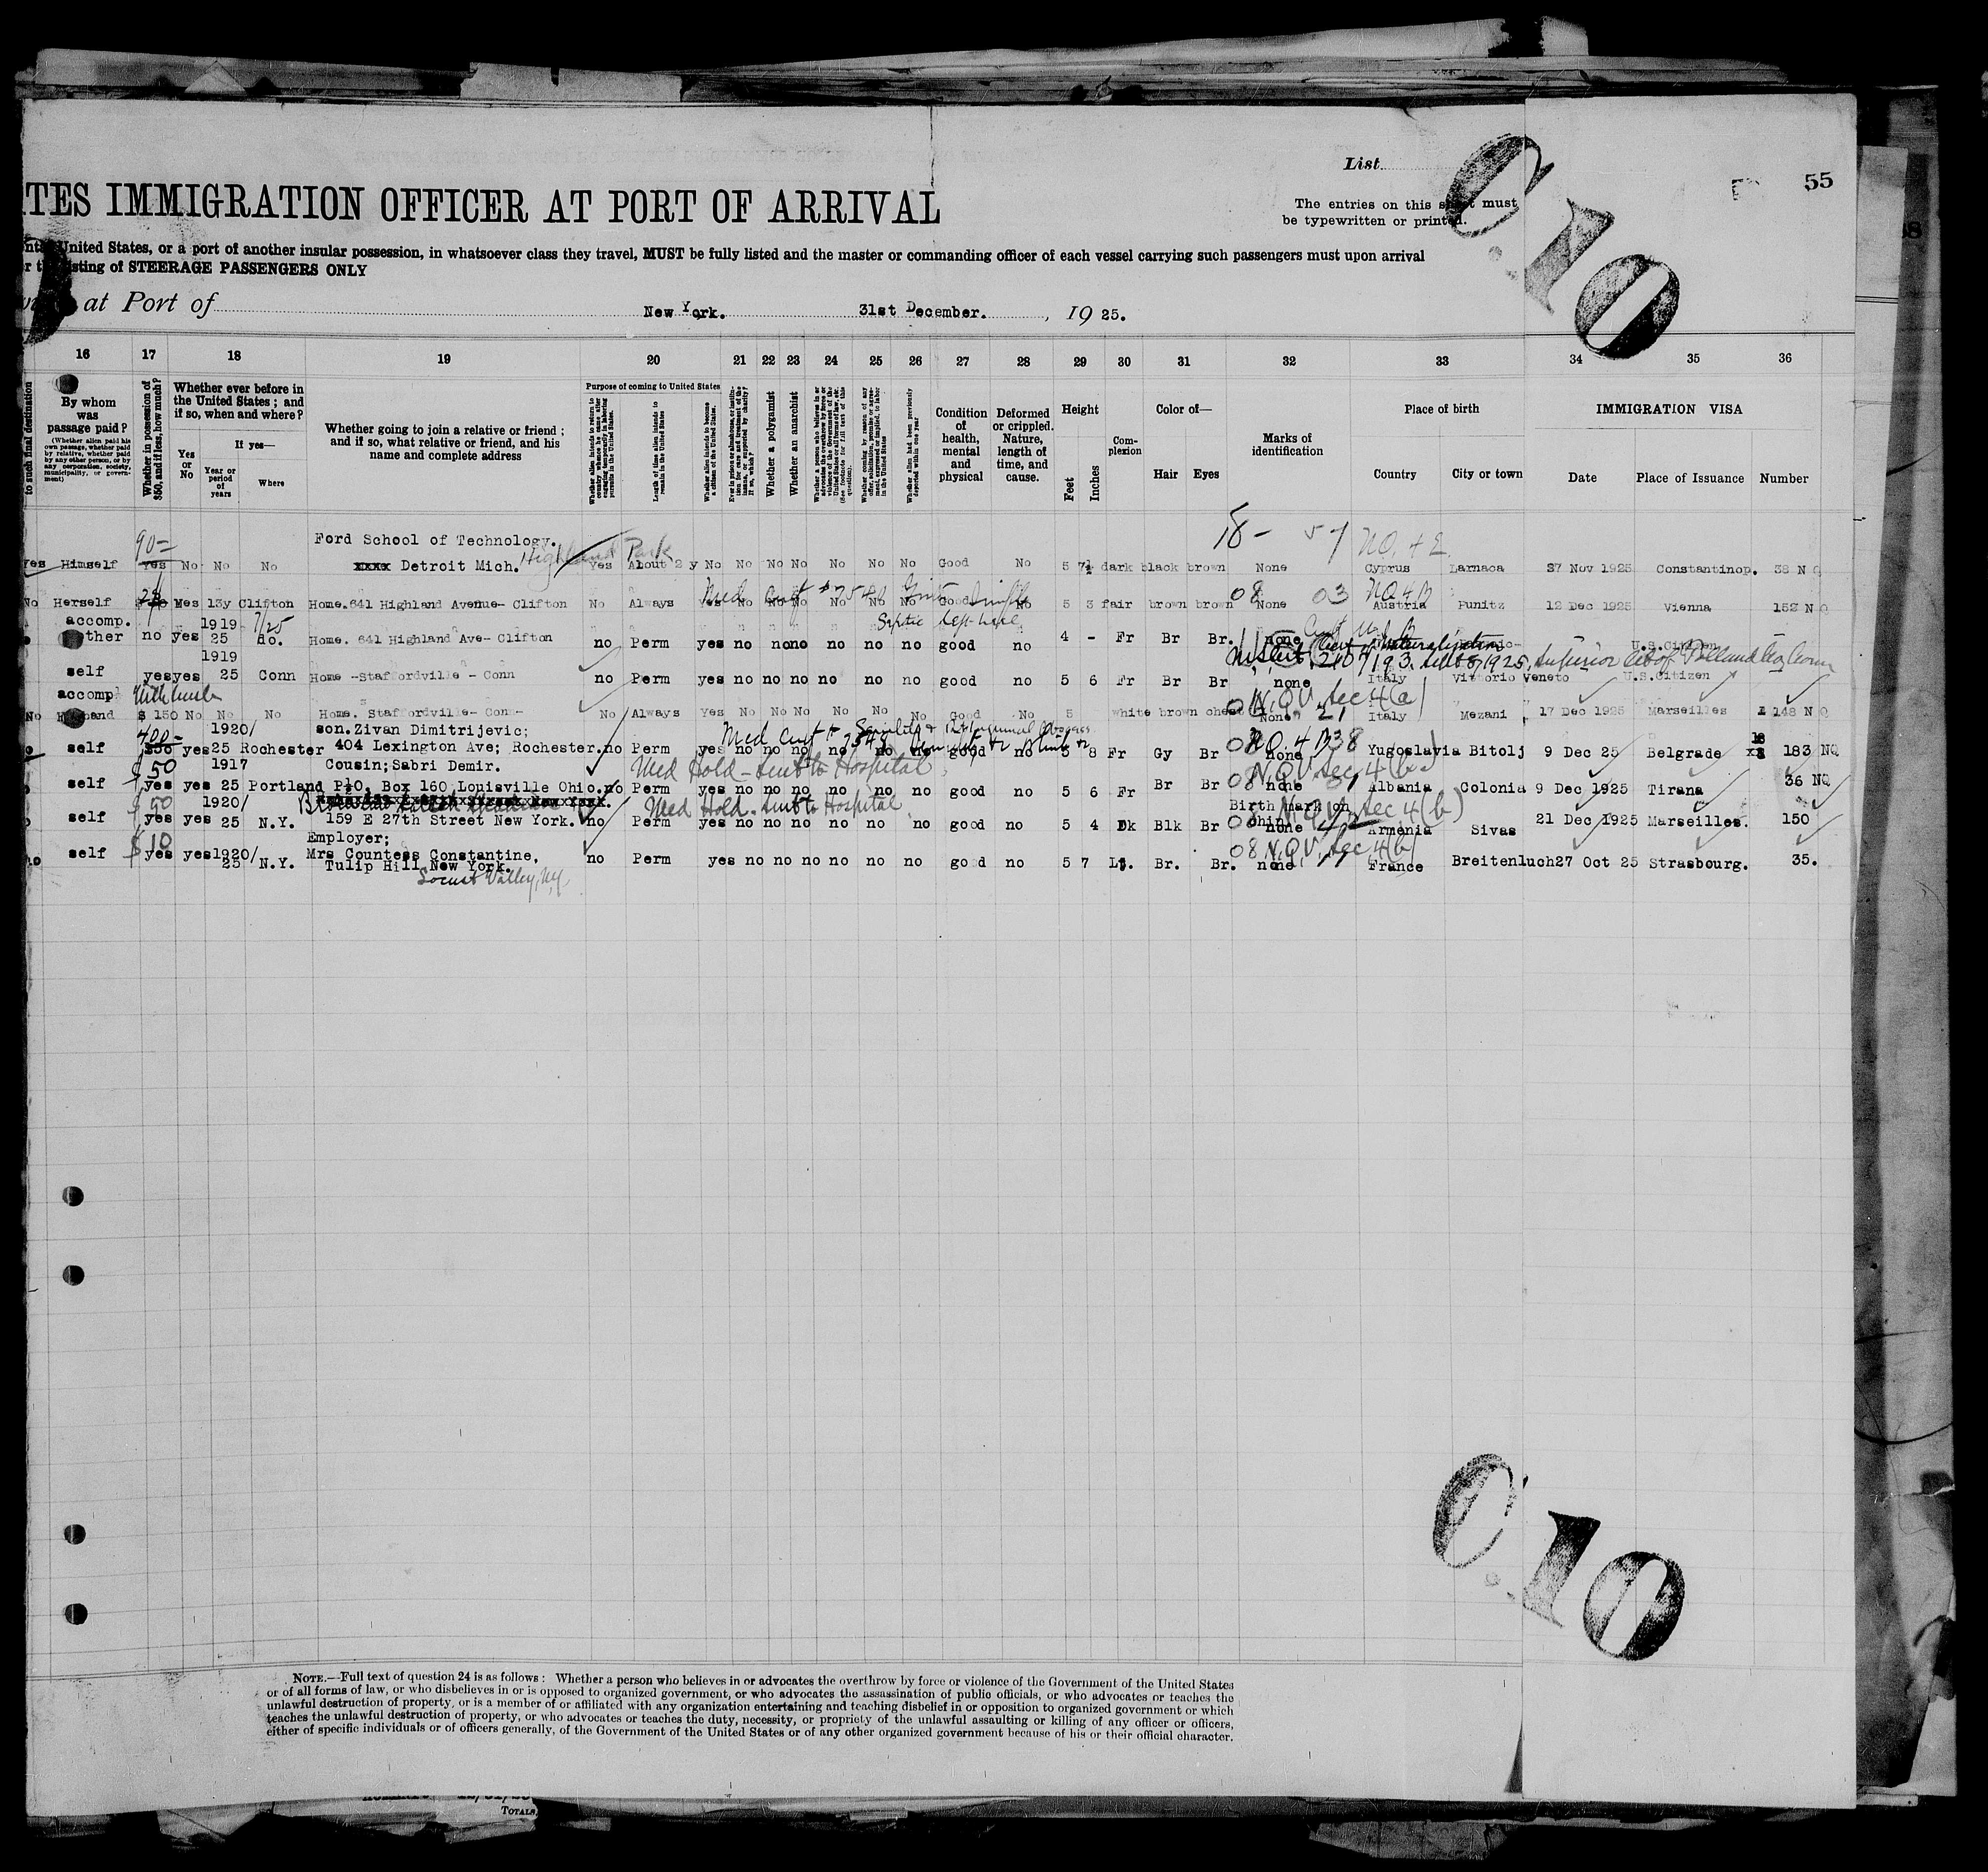 List
55
TES IMMIGRATION OFFICER AT PORT OF ARRIVAL
The entries on this sheet must
be typewritten or printed.
United States, or a port of another insular possession, in whatsoever class they travel, MUST be fully listed and the master or commanding officer of each vessel carrying such passengers must upon arrival
listing of STEERAGE PASSENGERS ONLY
at Port of New York. 31st December. , 19 25.
C.10
16 17 18 19 20 21 22 23 24 25 26 27 28 29 30 31 32 33 34 35 36
to such final destination
By whom was passage paid?
(Whether alien paid his own passage, whether paid by relative, whether paid by any other person, or by any corporation, society, municipality, or government)
Whether in possession of $50, and if less, how much?
Whether ever before in the United States; and if so, when and where?
Yes or No
If yes—
Year or period of years
Where
Whether going to join a relative or friend; and if so, what relative or friend, and his name and complete address
Purpose of coming to United States
Whether alien intends to return to country whence he came after engaging temporarily in laboring pursuits in the United States.
Length of time alien intends to remain in the United States
Whether alien intends to become a citizen of the United States.
Ever in prison or almshouse, or institution for care and treatment of the insane, or supported by charity? If so, which?
Whether a polygamist
Whether an anarchist
Whether a person who believes in or advocates the overthrow by force or violence of the Government of the United States or all forms of law, etc. (See footnote for full text of this question).
Whether coming by reason of any offer, solicitation, promise or agreement, expressed or implied, to labor in the United States
Whether alien had been previously deported within one year
Condition of health, mental and physical
Deformed or crippled. Nature, length of time, and cause.
Height
Feet
Inches
Complexion
Color of—
Hair Eyes
Marks of identification
Place of birth
Country City or town
IMMIGRATION VISA
Date Place of Issuance Number
90- Ford School of Technology. 18- 57 NQ. 4 E.
Yes Himself Yes No No No xxxx Detroit Mich. Highland Park Yes About 2 y No No No No No No No Good No 5 7½ dark black brown None Cyprus Larnaca 27 Nov 1925 Constantinop. 38 N Q
Med Cert # 08 03 NQ 4 B
No Herself Yes 13y Clifton Home. 641 Highland Avenue- Clifton No Always Yes No No No No No No Good No 5 3 fair brown brown None Austria Punitz 12 Dec 1925 Vienna 152 N Q
accomp. 1919 7/25
other no yes 25 do. Home. 641 Highland Ave- Clifton no Perm yes no no no no no no good no 4 - Fr Br Br. none U.S.Citizen
1919
self yes yes 25 Conn Home -Staffordville - Conn no Perm yes no no no no no no good no 5 6 Fr Br Br none Italy Vittorio Veneto U.S.Citizen
accomp N.Q.V. Sec 4(a)
No Husband $ 150 No No No Home. Staffordville- Conn- No Always Yes No No No No No No Good No 5 white brown None 21 Italy Mezani 17 Dec 1925 Marseilles 148 N Q
400- 1920/ son.Zivan Dimitrijevic; Med Cert
self yes 25 Rochester 404 Lexington Ave; Rochester. no Perm yes no no no no no no good no 5 8 Fr Gy Br none Yugoslavia Bitolj 9 Dec 25 Belgrade 183 NQ
$50 1917 Cousin;Sabri Demir. Med Hold - sent to Hospital 08 N.Q.V. Sec 4(b)
self yes yes 25 Portland P.O, Box 160 Louisville Ohio. no Perm yes no no no no no no good no 5 6 Fr Br Br none Albania Colonia 9 Dec 1925 Tirana 36 NQ
$50 1920/ Med Hold - sent to Hospital Birth mark on chin N.Q.V. Sec 4(b)
self yes yes 25 N.Y. 159 E 27th Street New York. no Perm yes no no no no no no good no 5 4 Dk Blk Br none Armenia Sivas 21 Dec 1925 Marseilles. 150
$10 Employer; 08 N.Q.V. Sec 4(b)
self yes yes 1920/ 25 N.Y. Mrs Countess Constantine, no Perm yes no no no no no no good no 5 7 Lt. Br. Br. none France Breitenluch 27 Oct 25 Strasbourg. 35.
Tulip Hill New York.
Locust Valley, NY
C.10
NOTE.—Full text of question 24 is as follows: Whether a person who believes in or advocates the overthrow by force or violence of the Government of the United States
or of all forms of law, or who disbelieves in or is opposed to organized government, or who advocates the assassination of public officials, or who advocates or teaches the
unlawful destruction of property, or is a member of or affiliated with any organization entertaining and teaching disbelief in or opposition to organized government or which
teaches the unlawful destruction of property, or who advocates or teaches the duty, necessity, or propriety of the unlawful assaulting or killing of any officer or officers,
either of specific individuals or of officers generally, of the Government of the United States or of any other organized government because of his or their official character.
TOTALS,